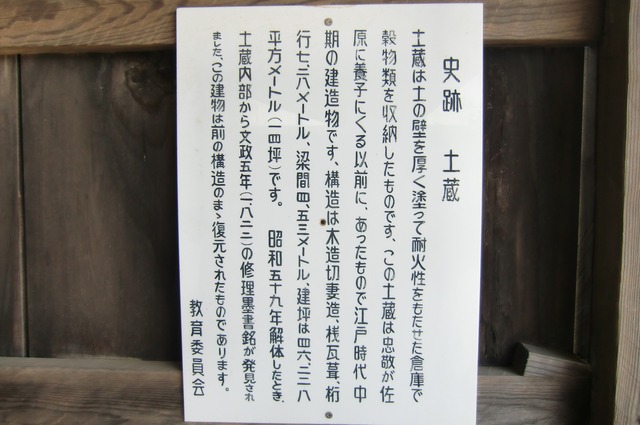 史跡 土蔵
土蔵は土の壁を厚く塗って耐火性をもたせた倉庫で
穀物類を収納したものです、この土蔵は忠敬が佐
原に養子にくる以前に、あったもので江戸時代中
期の建造物です、構造は木造切妻造、桟瓦葺、桁
行七、二八メートル、梁間四、五三メートル、建坪は四六、二八
平方メートル(一四坪)です。 昭和五十九年解体したとき、
土蔵内部から文政五年(一八二二)の修理墨書銘が発見され
ました、この建物は前の構造のまゝ復元されたものであります。
教育委員会